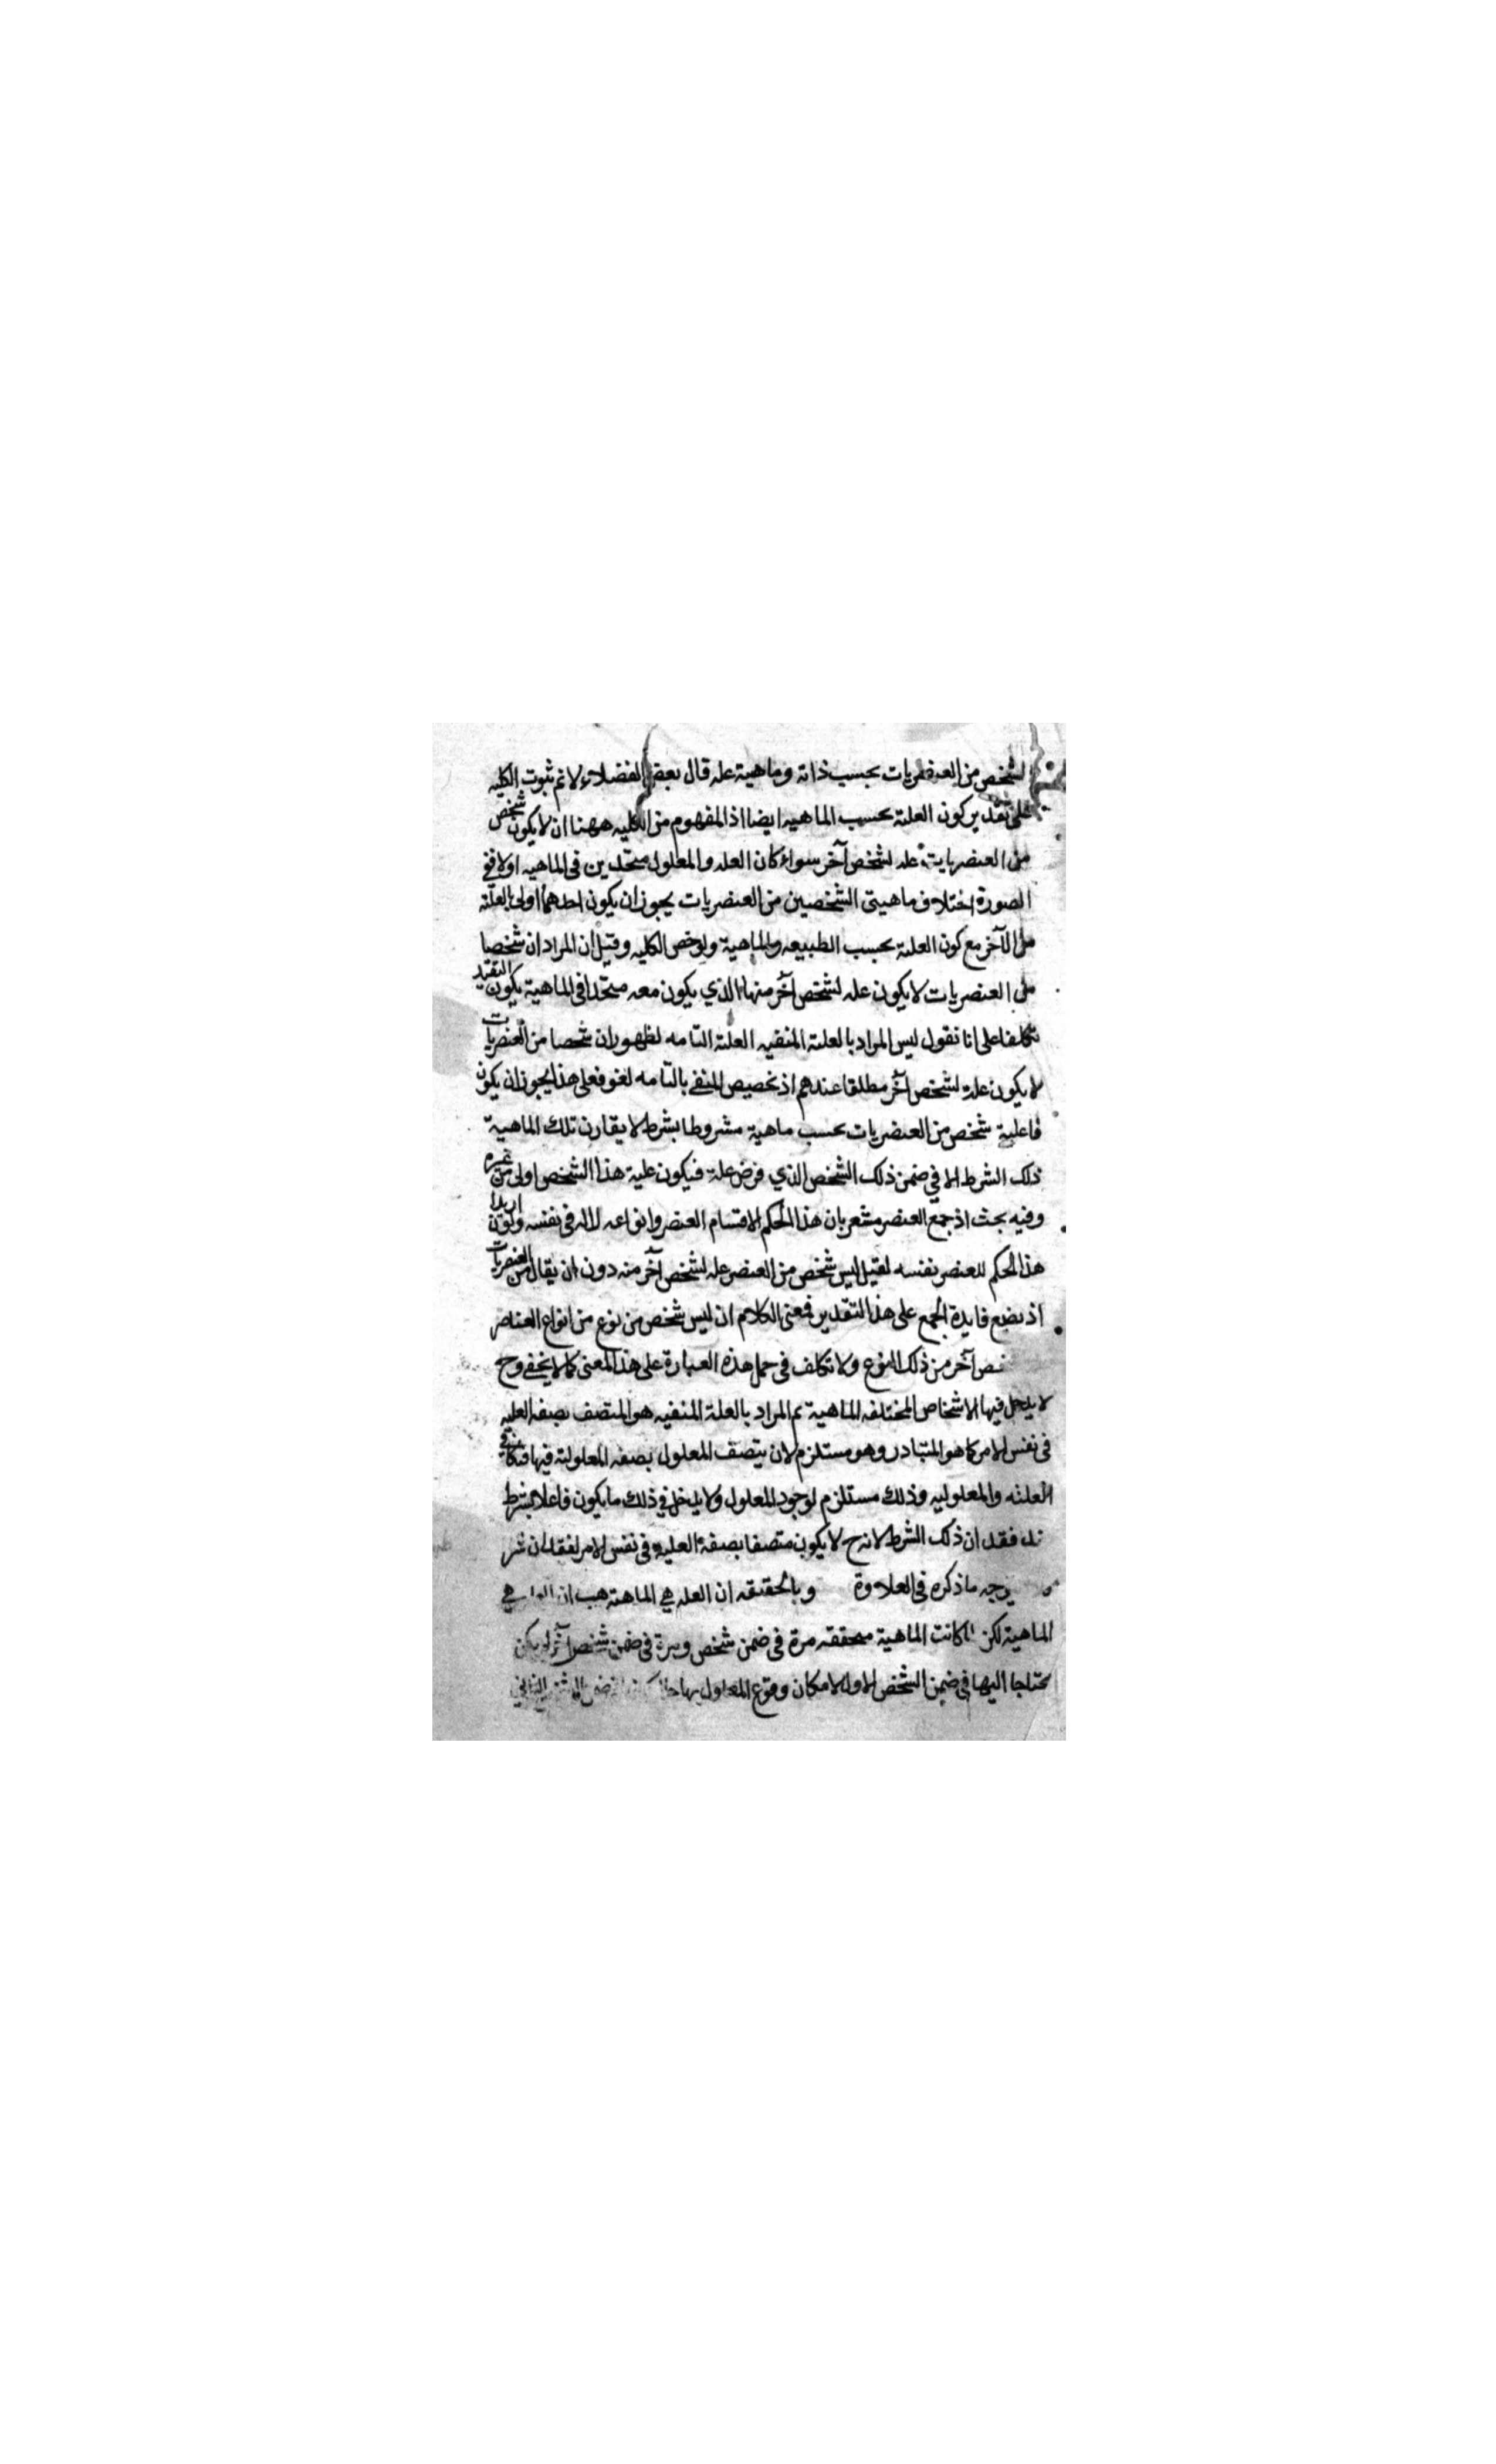 لشخص من العنصريات بحسب ذاته وماهية عله قال بعض الفضلاء لا نم ثبوت الكليه
على تقدير كون العلية بحسب الماهيه ايضا اذ المفهوم من الكليه ههنا ان لا يكون شخص
من العنصريات عله لشخص آخر سواء كان العله والمعلول متحدين فى الماهيه او لا ففى
الصورة اختلاف ماهيتى الشخصين من العنصريات يجوز ان يكون احدهما اولى بالعلية
من الآخر مع كون العلية بحسب الطبيعه والماهية ولو خص الكليه وقيل ان المراد ان شخصا
من العنصريات لا يكون عله لشخص آخر منها الذي يكون معه متحدا فى الماهية يكون التقييد
تكلفا على انا نقول ليس المراد بالعلية المنفيه العلية التامه لظهور ان شخصا من العنصريات
لا يكون علة لشخص آخر مطلقا عندهم اذ تخصيص المنفى بالتامه لغو فعلى هذا يجوز ان يكون
فاعلية شخص من العنصريات بحسب ماهية مشروطا بشرط لا يقارن تلك الماهية
ذلك الشرط الا في ضمن ذلك الشخص الذي فرض علة فيكون علية هذا الشخص اولى من غيره
وفيه بحث اذ جمع العنصر مشعر بان هذا الحكم لاقسام العنصر وانواعه لا له فى نفسه ولو اريد
هذا الحكم للعنصر نفسه لقيل ليس شخص من العنصر عله لشخص آخر منه دون ان يقال من العنصريات
اذ يضيع فايدة الجمع على هذا التقدير فمعنى الكلام ان ليس شخص من نوع من انواع العناصر
آخر من ذلك النوع ولا تكلف فى حمل هذه العبارة على هذا المعنى كما لا يخفى وح
لا يدخل فيها الاشخاص المختلفه الماهية ثم المراد بالعلة المنفيه هو المتصف بصفه العليه
فى نفس الامر كما هو المتبادر وهو مستلزم لان يتصف المعلول بصفه المعلولية فيها
العلية والمعلوليه وذلك مستلزم لوجود المعلول ولا يدخل في ذلك ما يكون فاعلا بشرط
فقد ان ذلك الشرط لانه ح لا يكون متصفا بصفة العليه فى نفس الامر لفقدان
ما ذكره فى العلاوة وبالحقيقه ان العله هي الماهية هب ان هي
الماهية لكن لما كانت الماهية متحققه مرة فى ضمن شخص ومرة فى ضمن شخص آخر لم يكن
محتاجا اليها فى ضمن الشخص الاول لامكان وقوع المعلول بها